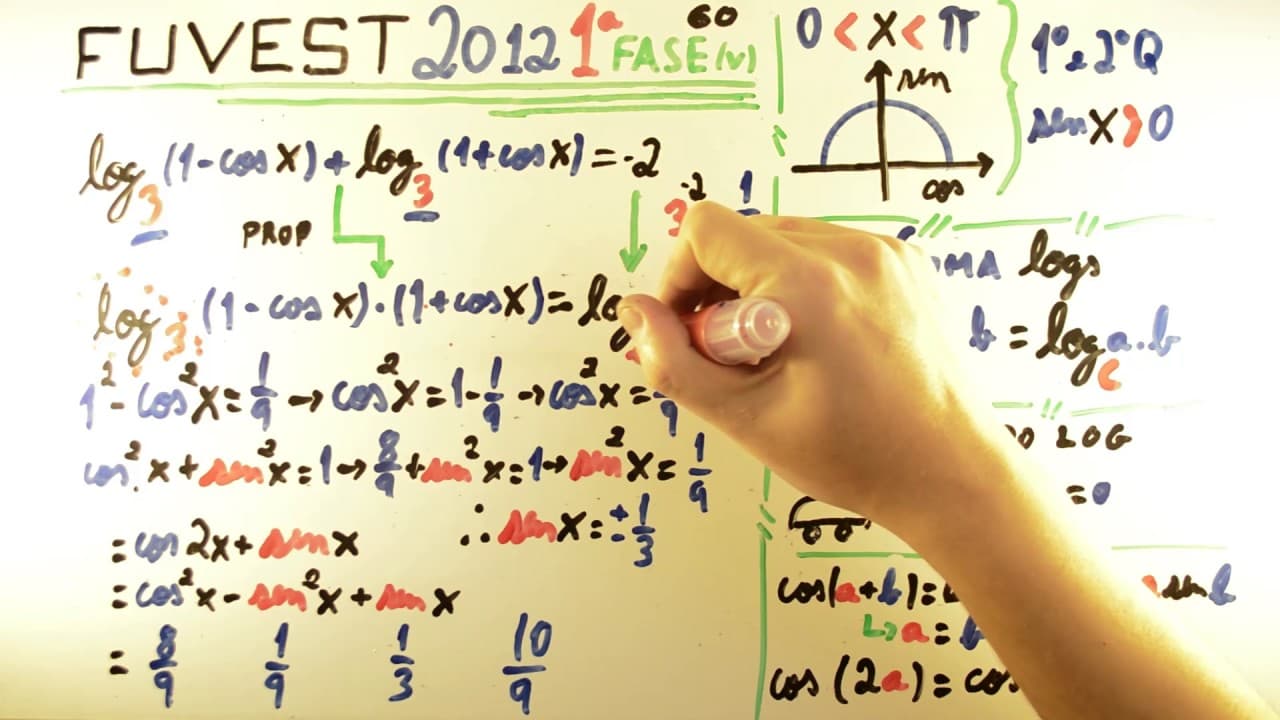 FUVEST 2012 1ª FASE(V) 60
log₃ (1-cos x) + log₃ (1+cos x) = -2
PROP
3⁻² 1
log₃ (1-cos x)·(1+cos x) = lo
1² - cos²x = 1/9 → cos²x = 1 - 1/9 → cos²x = /9
cos²x + sen²x = 1 → 8/9 + sen²x = 1 → sen²x = 1/9
= cos 2x + sen x ∴ sen x = ±1/3
= cos²x - sen²x + sen x
= 8/9 1/9 1/3 10/9
0 < x < π
sen
cos
1º e 2º Q
sen x > 0
logs
b = log_c a.b
LOG
= 0
cos(a+b) =
sen b
↳ a =
cos (2a) = cos